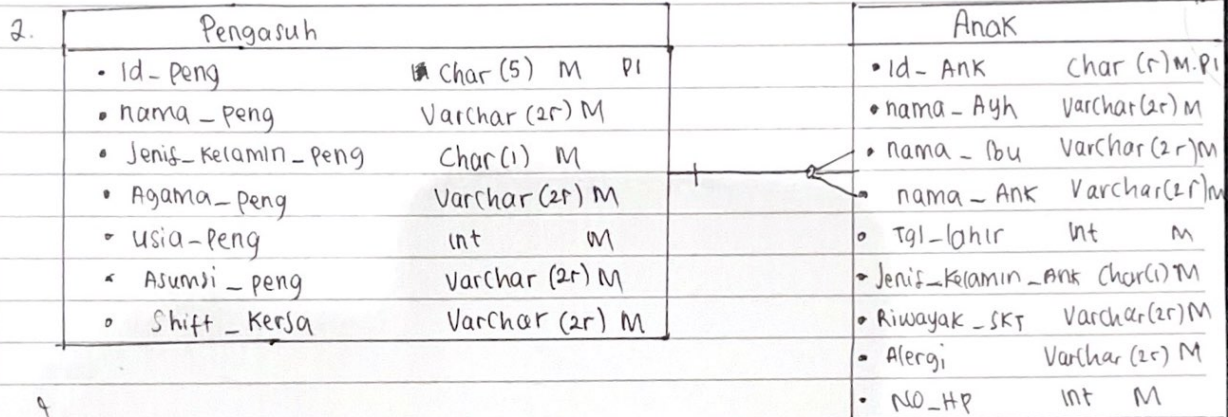 2.
Pengasuh
• Id_Peng Char (5) M PI
• nama_peng Varchar (25) M
• Jenis_Kelamin_Peng Char (1) M
• Agama_Peng Varchar (25) M
• usia_Peng int M
• Asumsi_peng Varchar (25) M
• Shift_Kersa Varchar (25) M
Anak
• Id_Ank Char (5) M.PI
• nama_Ayh Varchar (25) M
• nama_Ibu Varchar (25) M
• nama_Ank Varchar (25) M
• Tgl_lahir int M
• Jenis_Kelamin_Ank Char (1) M
• Riwayak_SKT Varchar (25) M
• Alergi Varchar (25) M
• NO_HP int M